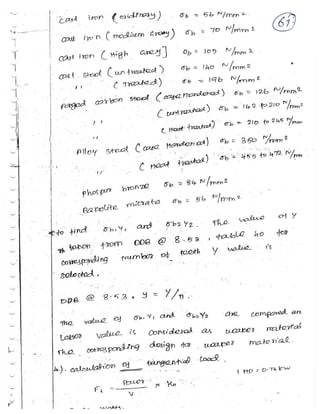 67
Cast Iron (ordinary) σb = 56 N/mm2
cast Iron (medium Gray) σb = 70 N/mm2
cast Iron (High Grey] σb = 105 N/mm2
cast Steel (untreated) σb = 140 N/mm2
,, (Treated) σb = 196 N/mm2
carbon steel (case Hardened) σb = 126 N/mm2
,, (untreated) σb = 142 to 210 N/mm2
,, (Heat treated) σb = 210 to 245 N/mm
Alloy steel (case Hardened) σb = 350 N/mm2
(Heat treated) σb = 455 to 472 N/mm
phosper bronze σb = 84 N/mm2
micrata σb = 56 N/mm2
to find σb1Y1 and σb2Y2. The value of Y
taken from DDB @ 8.53, table 40 for
corresponding number of teeth Y value is
selected.
DDB @ 8.53. y = Y/π.
The value of σb1Y1 and σb2Y2 are compared and
Lesser value is considered as weaker material
The corresponding design for weaker material.
4). calculation of tangential Load.
1 HP = 0.74 KW
Ft = Power/V × Ko